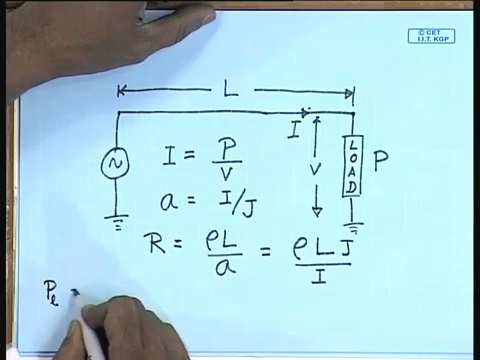 © CET
I.I.T. KGP
L
I
I = P/V
V
LOAD
P
a = I/J
R = ρL/a = ρLJ/I
P_l